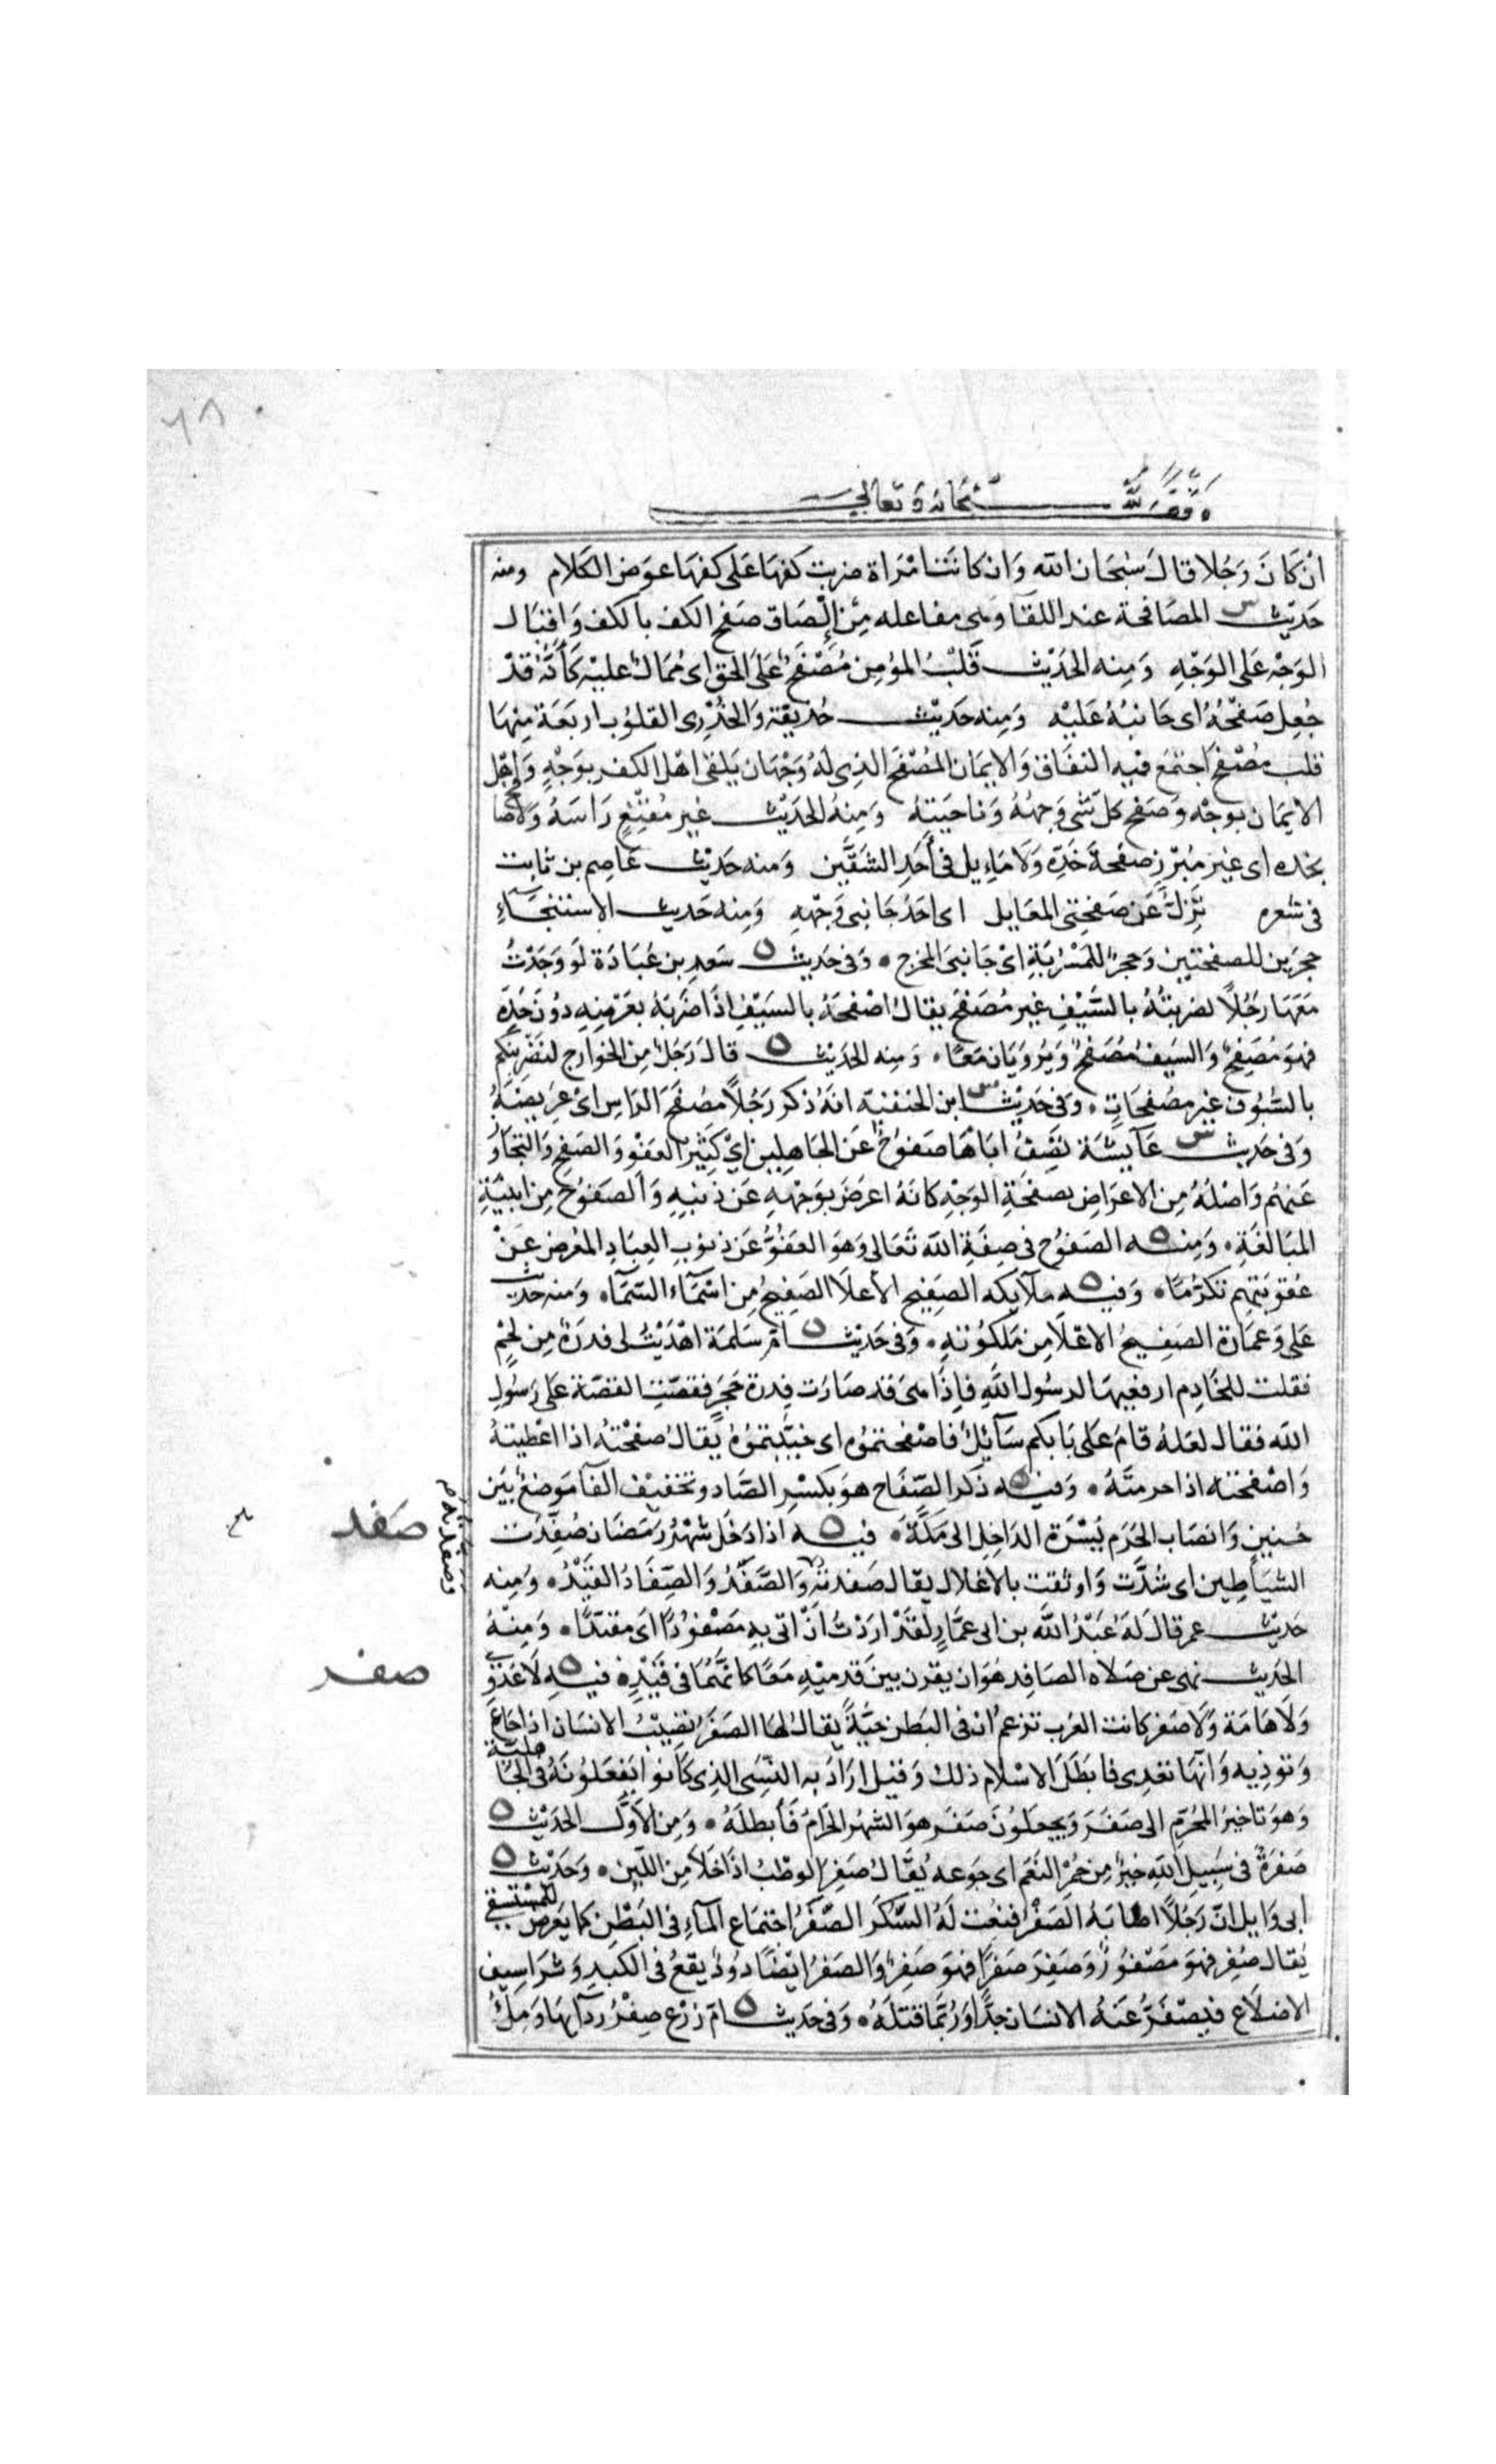 ٦٨
وقف لله سبحانه وتعالى
ان كَانَ رَجُلا قالَ سُبْحَان الله وَان كانَت امْرَاة ضربت كفهَا عَلى كفهَا عوَض الكلام ومنه
حَدِيْث س المصَافحة عند اللقآ وهى مفاعله مِن الْصَاق صَفح الكف بالكف وَاقبَال
الوَجْه عَلى الوَجْهِ وَمِنه الحَدِيْث قَلْبُ المؤمِن مُصْفَحٌ عَلَى الحق اى مُمَالٌ عليْه كَأنّه قدْ
جُعِل صَفْحُهُ اى جَانبُهُ عَليْه وَمِنه حَدِيْث حُذيفة وَالخدْرِى القلوُب اربَعَة مِنهَا
قلب مصْفح اجتمَع فيْه النفَاق وَالايمَان المُصْفَح الذِى لهُ وَجْهَان يَلقى اهْل الكفر بوَجْهٍ وَاهْل
الايمَان بوَجْه وَصَفح كل شَى وَجهُهُ وَناحيَتهُ وَمِنهُ الحَدِيْث غير مُقنِعٍ رَاسَهُ وَلاصَافح
بخده اى غيْر مُبْرِزٍ صَفحة خَدّه وَلاَ مَايِل فى أحَدِ الشقَّين وَمنه حَدِيْث عَاصِم بن ثابت
فى شعره تزلّ عَن صَفحتى المعَابِل اى احَد جَانبى وَجْههِ وَمِنه حَديث الاستنجَآءِ
حجرَين للصفحتيْن وَحجرًا للمَسْرُبَةِ اىْ جَانِبَى المخرج ۰ وَفى حَديث ه سَعد بن عُبَادَة لَو وَجَدْتُ
مَعَهَا رَجُلاً لضربتُهُ بالسَّيْفِ غير مُصَفحٍ يقالُ اصْفحَهُ بالسَيْفِ اذَا ضَرَبَهُ بعَرْضِه دُونَ حَدّه
فهوَ مُصْفِحٌ وَالسَيفُ مُصْفَحٌ وَيُروَيَان مَعًا ۰ وَمِنه الحَدِيْث ه قالَ رَجُلٌ مِن الخوَارج لنَضْرِبنكم
بالسّيُوف غيْر مصْفحَاتٍ ۰ وَفى حَدِيْث س ابن الحنفيّة انهُ ذكر رَجُلاً مصْفحَ الرَاسِ اىْ عرِيضَهُ
وَفى حَديث س عَآيشَة تصِفُ ابَاهَا صَفوُحٌ عَن الجَاهِلِين اىْ كثِيْر العَفْو وَالصَفحِ وَالتجَاوُز
عَنهُم وَاصْلهُ مِن الاعرَاضِ بصَفحَةِ الوَجْهِ كانهُ اعرَضَ بوَجْهِهِ عَن ذنبهِ وَالصَفوُح مِن ابنيَةِ
المبَالغَةِ ۰ وَمِنه ه الصَفوُح فى صِفَةِ الله تَعَالى وَهوَ العَفُوُّ عَن ذنوُبِ العِبَادِ المُعْرِضُ عَنْ
عُقوُبَتِهِم تكرُّمًا ۰ وَفيْه ه ملآيكه الصَفِيْح الأعلَا الصَفِيحُ مِن اسْمَآءِ السَّمَآء ۰ وَمنه حديث
عَلى وَعمَارة الصَفِيحُ الاعْلَا مِن مَلكوُتهِ ۰ وَفى حَدِيْث ه امّ سَلمَة اهْدِيَتْ لى فِدرَةٌ مِن لحْمٍ
فقلت للخَادِم ارفعِيهَا لرسُول الله فاِذَا هى قد صَارَت فِدرة حَجَرٍ فقصّت القصّة عَلى رَسُولِ
الله فقال لعَلهُ قامَ عَلى بَابكم سَآئِلٌ فاصْفحتمُوه اى خيّبتمُوهُ يُقالُ صَفحْتهُ اذا اعْطيْتهُ
وَاصْفحتهُ اذا حرمتَهُ ۰ وَفيه ه ذكر الصّفَاح هوَ بكسْرِ الصَّاد وتخفِيْف الفآ مَوضعٌ بَيْن
حُنين وَانصَاب الحَرَم يَسْرَة الدَاخِل الى مَكّةَ ۰ فيه ه اذا دَخَل شهْرُ رَمَضَان صُفِّدَت
الشيَاطِين اى شدَّت وَاوثقت بالاغلال يقال صَفدتهُ وَالصَّفَدُ وَالصِّفَادُ القَيْدُ ۰ وَمِنه
وصفدته م
صَفد
حَدِيْث عمر قالَ لهُ عَبْدُ اللَّه بن ابى عمَّارٍ لقدْ ارَدْتُ أنْ اتى بهِ مَصْفوُدًا اى مقيّدًا ۰ وَمِنْهُ
الحَدِيث نهى عن صَلاه الصَافِد هُوَ ان يقرن بيْن قدميْهِ مَعًا كانهُمَا فى قَيْدٍ ۰ فيْه ه لَا عَدْوَى
صفر
وَلا هَامَة وَلا صَفر كانت العَرب تزعمُ ان فى البَطن حيَّةً يقالُ لهَا الصَفَرُ تصِيْبُ الانسَان اذا جَاعَ
وَتوذِيه وَانهَا تعْدِى فابطَلَ الاسْلام ذلك وَقيل ارَادَ به النسِىَ الذِى كانوُا يَفعَلوُنهُ فى الجَاهلية
وَهوَ تاخيرُ المُحَرّمِ الى صَفَرَ وَيجعَلوُنَ صَفَر هوَ الشهْر الحَرَامُ فَأبطلَهُ ۰ وَمِن الأوَّل الحَدِيْث ه
صَفرَةٌ فى سَبِيل الله خيرٌ مِن حُمْر النَعَم اى جَوعه يُقَالُ صَفِر الوطْبُ اذَا خَلاَ مِن اللبَن ۰ وَحَدِيْث ه
ابى وَايل انّ رَجُلاً اصَابَهُ الصَفَرُ فنعِت لهُ السَّكَر الصَّفَرُ اجتمَاع المآءِ فى البَطْنِ كما يَعرِضُ للمُستسقى
يُقال صُفِر فهوَ مَصْفوُرٌ وَصَفِرَ صَفَرًا فهوَ صَفِرٌ وَالصَفرُ ايضًا دُودٌ يقعُ فى الكبدِ وَشرَاسيف
الاضلَاع فيَصْفَرُّ عَنهُ الانسَان جدًّا وَرُبمَا قتلَهُ ۰ وَفى حَديث ه امّ زرْع صِفْرُ ردَآيهَا وَمِلْءُ